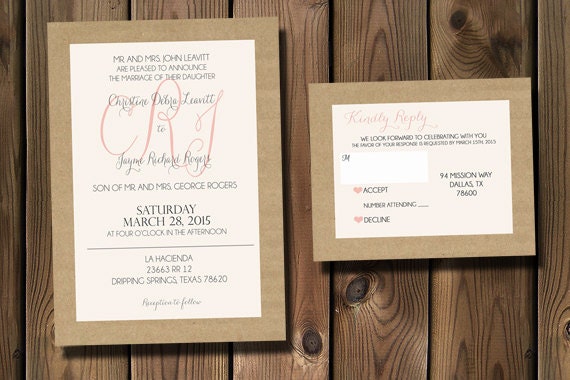 MR AND MRS. JOHN LEAVITT
ARE PLEASED TO ANNOUNCE
THE MARRIAGE OF THEIR DAUGHTER
Christine Debra Leavitt
CRJ
to
Jayme Richard Rogers
SON OF MR. AND MRS. GEORGE ROGERS
SATURDAY
MARCH 28, 2015
AT FOUR O'CLOCK IN THE AFTERNOON
LA HACIENDA
23663 RR 12
DRIPPING SPRINGS, TEXAS 78620
Reception to follow
Kindly Reply
WE LOOK FORWARD TO CELEBRATING WITH YOU
THE FAVOR OF YOUR RESPONSE IS REQUESTED BY MARCH 15TH, 2015
M
ACCEPT
NUMBER ATTENDING ___
DECLINE
94 MISSION WAY
DALLAS, TX
78600